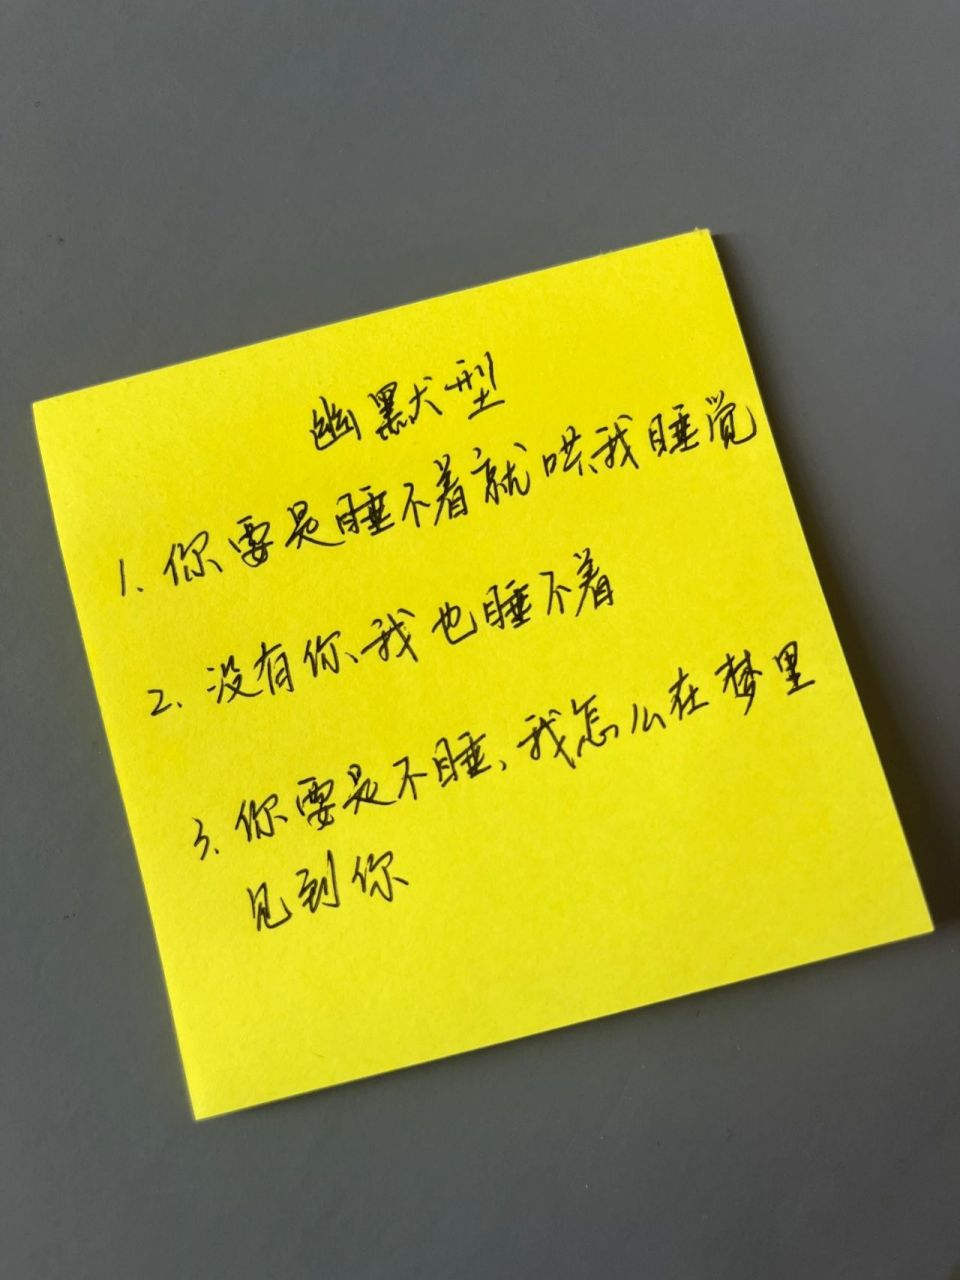 幽默型
1. 你要是睡不着就哄我睡觉
2. 没有你、我也睡不着
3. 你要是不睡、我怎么在梦里
见到你